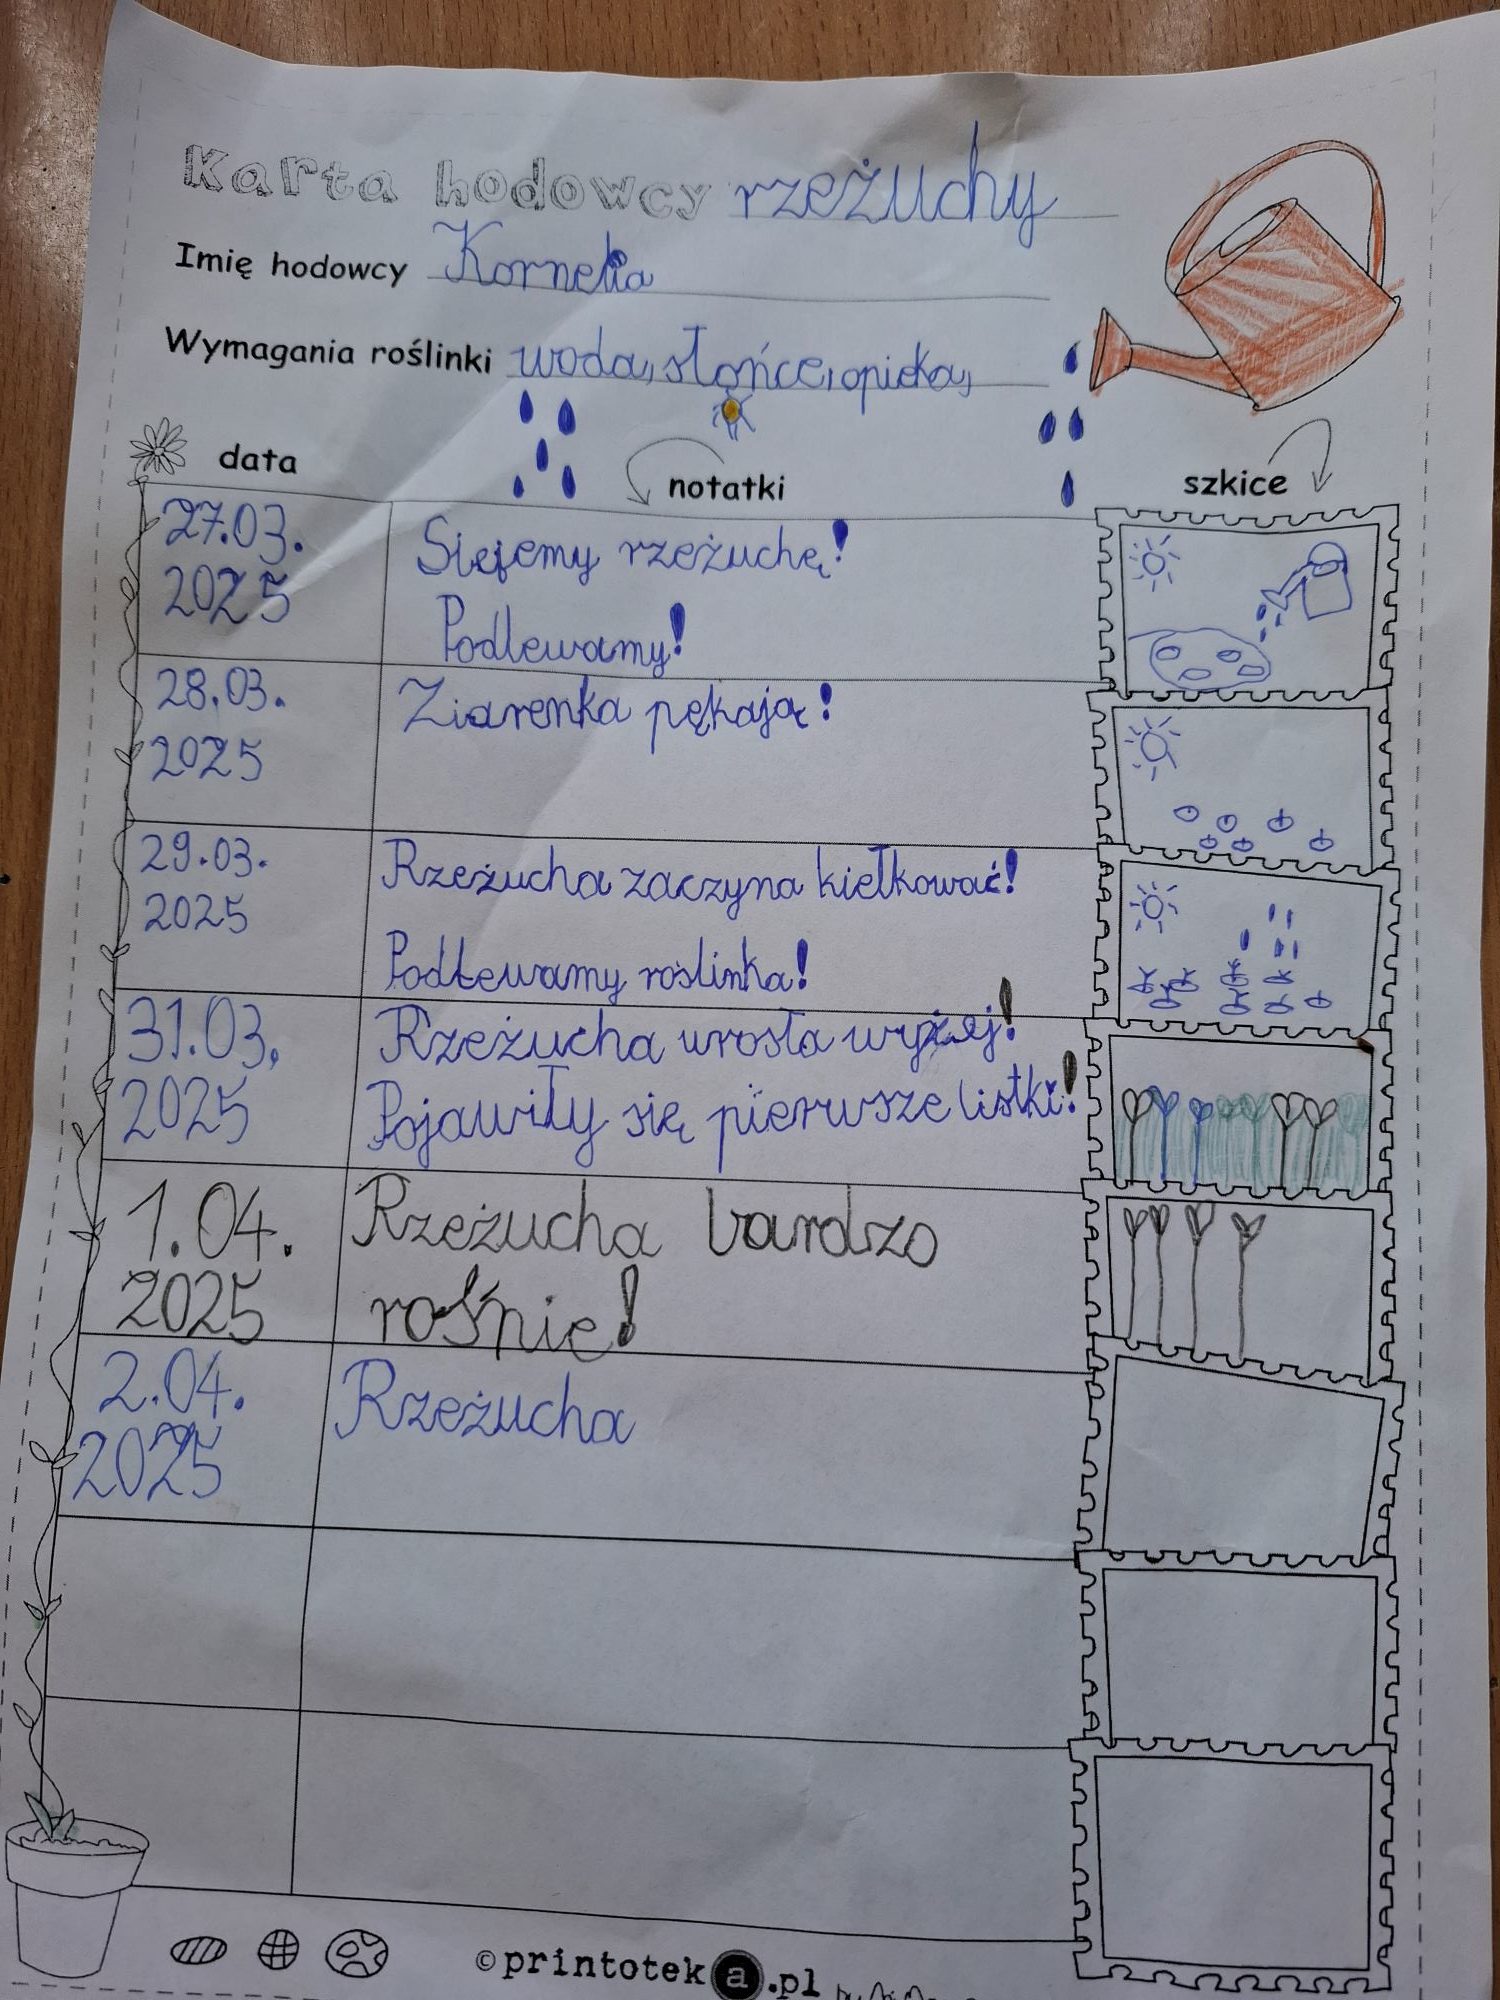 Karta hodowcy rzeżuchy
Imię hodowcy Kornelia
Wymagania roślinki woda, słońce, opieka,
data
notatki
szkice
27.03.
2025
Siejemy rzeżuchę!
Podlewamy!
28.03.
2025
Ziarenka pękają!
29.03.
2025
Rzeżucha zaczyna kiełkować!
Podlewamy roślinka!
31.03.
2025
Rzeżucha urosła wyżej!
Pojawiły się pierwsze listki!
1.04.
2025
Rzeżucha bardzo
rośnie!
2.04.
2025
Rzeżucha
©printoteka.pl